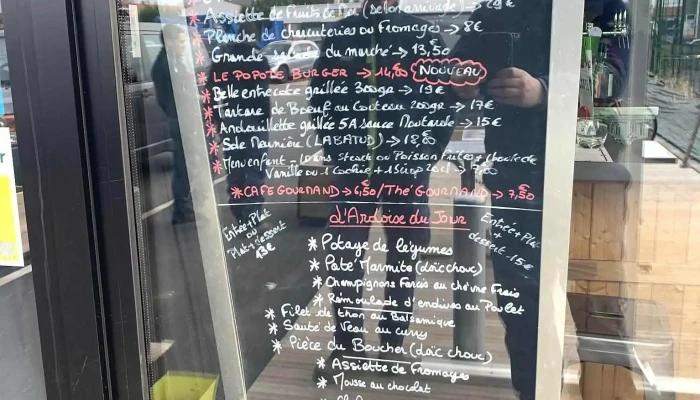 * Assiette de Fruits de Mer (selon arrivage) →
* Planche de charcuteries ou Fromages → 8€
* Grande salade du marché → 13,50
* LE POPOTE BURGER → 14,00 NOUVEAU
* Belle entrecote grillée 300gr → 19€
* Tartare de Boeuf au Couteau 200gr → 17€
* Andouillette grillée 5A sauce Moutarde → 15€
* Sole Meunière (LABAUD) → 18,00€
* Menu enfant → Steack ou Poisson Frites + boule de
Vanille ou 1 Cookie + 1 Sirop 20cl → 7,00
* CAFE GOURMAND → 6,50€ / Thé GOURMAND → 7,50€
L'Ardoise du Jour
Entrée + Plat
ou
Plat + dessert
13€
Entrée + Plat +
dessert - 15€
* Potage de légumes
* Paté Marmite (daïc chouc)
* Champignons Farcis au chèvre Frais
* Rémoulade d'endives au Poulet
* Filet de thon au Balsamique
* Sauté de Veau au curry
* Pièce du Boucher (daïc chouc)
* Assiette de Fromages
* Mousse au chocolat
*